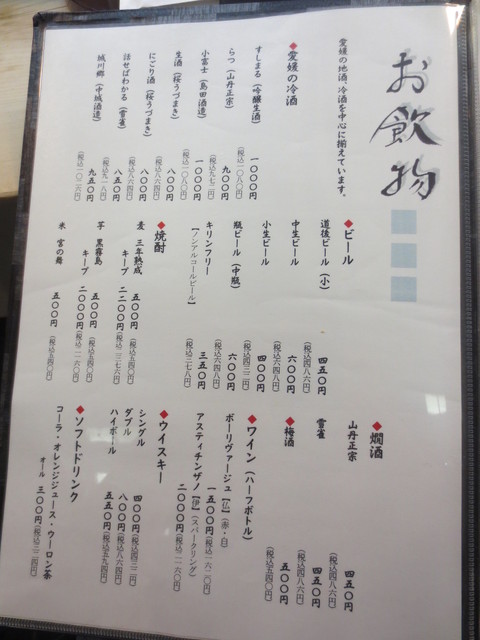 お飲物
愛媛の地酒、冷酒を中心に揃えています。
◆愛媛の冷酒
すしまる（吟醸生酒） 一〇〇〇円（税込一〇八〇円）
らつ（山丹正宗） 九〇〇円（税込九七二円）
小富士（島田酒造） 一〇〇〇円（税込一〇八〇円）
生酒（桜うづまき） 八〇〇円（税込八六四円）
にごり酒（桜うづまき） 八〇〇円（税込八六四円）
話せばわかる（雪雀） 八五〇円（税込九一八円）
城川郷（中城酒造） 九五〇円（税込一〇二六円）
◆ビール
道後ビール（小） 四五〇円（税込四八六円）
中生ビール 六〇〇円（税込六四八円）
小生ビール 四〇〇円（税込四三二円）
瓶ビール（中瓶） 六〇〇円（税込六四八円）
キリンフリー 三五〇円（税込三七八円）
【ノンアルコールビール】
◆焼酎
麦 三年熟成 五〇〇円（税込五四〇円）
キープ 二二〇〇円（税込二三七六円）
芋 黒霧島 五〇〇円（税込五四〇円）
キープ 二〇〇〇円（税込二一六〇円）
米 宮の舞 五〇〇円（税込五四〇円）
◆燗酒
山丹正宗 四五〇円（税込四八六円）
雪雀 四五〇円（税込四八六円）
◆梅酒 五〇〇円（税込五四〇円）
◆ワイン（ハーフボトル）
ボーリヴァージュ【仏】（赤・白） 一五〇〇円（税込一六二〇円）
アスティチンザノ【伊】（スパークリング） 二〇〇〇円（税込二一六〇円）
◆ウイスキー
シングル 四〇〇円（税込四三二円）
ダブル 八〇〇円（税込八六四円）
ハイボール 五五〇円（税込五九四円）
◆ソフトドリンク
コーラ・オレンジジュース・ウーロン茶
オール 三〇〇円（税込三二四円）